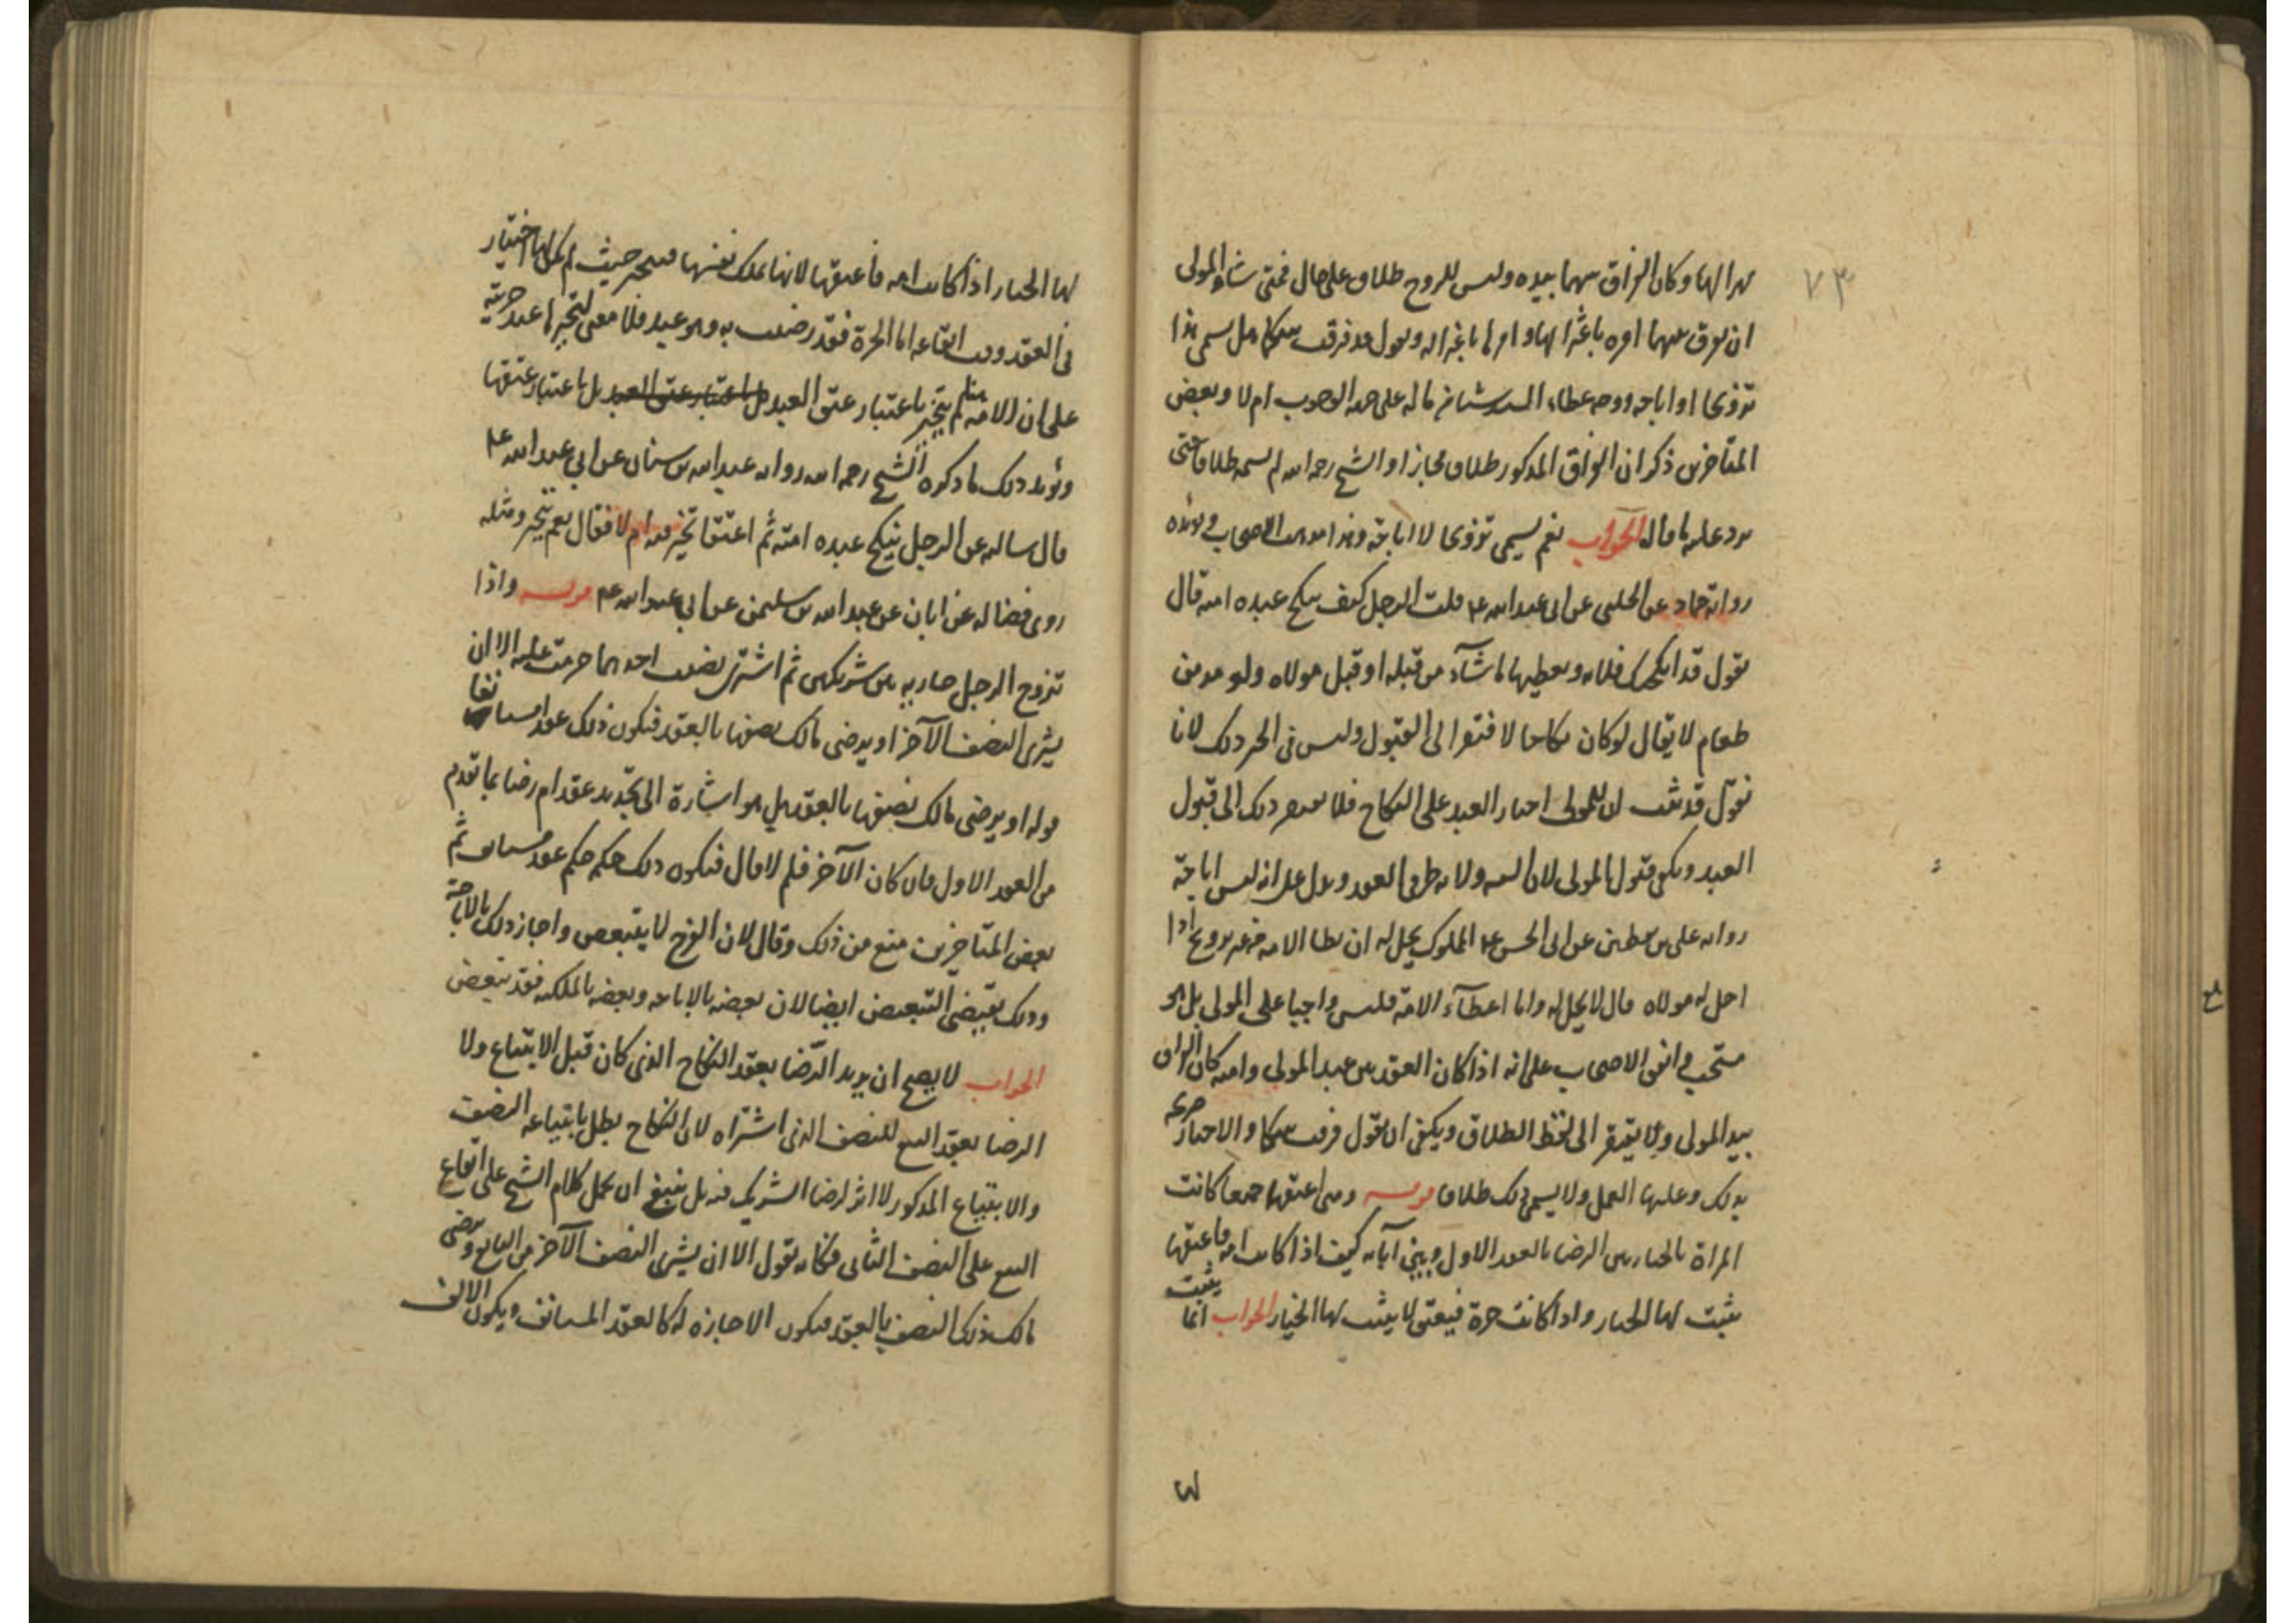 ٧٣
مهرا لها وكان الفراق بينهما بيده وليس للزوج طلاق على حال فمتى شاء المولى
ان يفرق بينهما امره باعتزالها و امرها باعتزاله ويقول قد فرقت بينكما هل يسمى هذا
تزويجا او اباحه ووجه عطاء السيد شيئا من ماله على جهة الوجوب ام لا وبعض
المتاخرين ذكر ان الفراق المذكور طلاق مجازا و الشيخ رحمه الله لم يسمه طلاقا حتى
يرد عليه ما قال الجواب نعم يسمى تزويجا لا اباحة وهذا مذهب الاصحاب ويؤيده
رواية حماد عن الحلبي عن ابي عبد الله ع قلت الرجل كيف ينكح عبده امته قال
يقول قد انكحتك فلانه ويعطيها ما شآء من قبله او قبل مولاه ولو مد من
طعام لا يقال لو كان نكاحا لافتقر الى القبول وليس في الخبر ذلك لانا
نقول قد ثبت ان للمولى اجبار العبد على النكاح فلا يفتقر ذلك الى قبول
العبد ويكفي قبول المولى لان اليه ولايه طرفي العقد ويدل على انه ليس اباحة
رواية علي بن يقطين عن ابي الحسن ع المملوك يحل له ان يطا الامه من غير تزويج اذا
احل له مولاه قال لا يحل له واما اعطآء الامة فليس واجبا على المولى بل هو
مستحب واتفق الاصحاب على انه اذا كان العقد بين عبد المولى وامته كان الفراق
بيد المولى ولا يفتقر الى لفظ الطلاق ويكفي ان يقول فرقت بينكما والاخبار صريحه
بذلك وعليها العمل ولا يسمى ذلك طلاقا ومتى اعتقها جميعا كانت
المراة بالخيار بين الرضا بالعقد الاول وبين آبائه كيف اذا كانت امة فاعتقها
يثبت لها الخيار واذا كانت حرة فيعتق لا يثبت لها الخيار الجواب انما يثبت
لها
لها الخيار اذا كانت امه فاعتقها لانها تملك نفسها فتتخير حيث لم يكن لها اختيار
في العقد وقت ايقاعه اما الحرة فقد رضيت به وهو عبد فلا معنى لتخيرها عند حريته
على ان الامة لم تتخير باعتبار عتق العبد بل باعتبار عتق العبد بل باعتبار عتقها
ويؤيد ذلك ما ذكره الشيخ رحمه الله رواية عبد الله بن سنان عن ابي عبد الله ع
قال سالته عن الرجل ينكح عبده امته ثم اعتقها تخير فيه ام لا فقال نعم تتخير ومثله
روى فضاله عن ابان عن عبد الله بن سليمن عن ابي عبد الله ع واذا
تزوج الرجل جاريه بين شريكين ثم اشترى نصيب احدهما حرمت عليه الا ان
يشترى النصف الآخر او يرضى مالك نصفها بالعقد فيكون ذلك عقدا مستانفا
قوله او يرضى مالك نصفها بالعقد هل هو اشارة الى تجديد عقد ام رضا بما تقدم
من العقد الاول فان كان الآخر فلم لا قال فيكون ذلك حكمه حكم عقد مستانف ثم
بعض المتاخرين منع من ذلك وقال لان الفرج لا يتبعض واجاز ذلك بالاباحة
وذلك يقتضي التبعيض ايضا لان بعضه بالاباحه وبعضه بالملكيه فقد تبعض
الجواب لا يصح ان يريد الرضا بعقد النكاح الذي كان قبل الابتياع ولا
الرضا بعقد البيع للنصف الذي اشتراه لان النكاح بطل بابتياعه النصف
والابتياع المذكور لا اثر لرضا الشريك فيه بل ينبغي ان يحمل كلام الشيخ على ايقاع
البيع على النصف الثاني فكانه يقول الا ان يشترى النصف الآخر من البايع ويرضى
مالك ذلك النصف بالعقد فيكون الاجازه له كالعقد المستانف ويكون